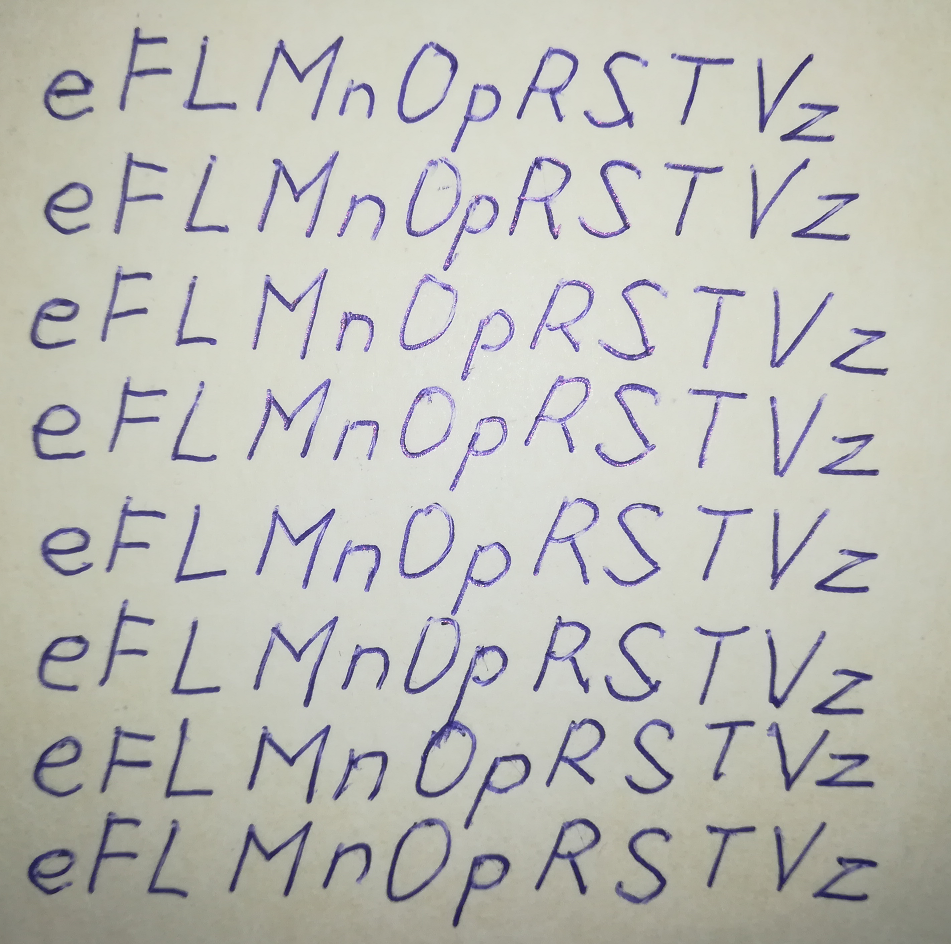 eFLMnOpRSTVz
eFLMnOpRSTVz
eFLMnOpRSTVz
eFLMnOpRSTVz
eFLMnOpRSTVz
eFLMnOpRSTVz
eFLMnOpRSTVz
eFLMnOpRSTVz